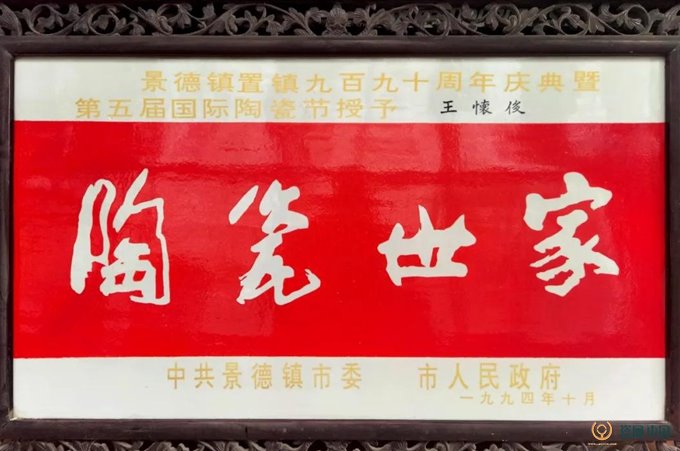 景德镇置镇九百九十周年庆典暨
第五届国际陶瓷节授予 王懷俊
陶瓷世家
中共景德镇市委 市人民政府
一九九四年十月